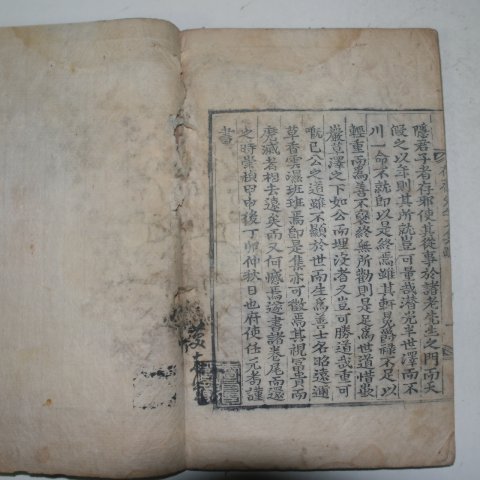 隱君子者存耶使其從事於諸老先生之門而天
假之以年則其所就豈可量哉潜光半世澤而不
川一命不就即以是終焉雖其軒冕爵祿不足以
輕重而爲善不變終無所勸則是足爲世道惜歟
巖草澤之下如公而埋沒者又豈可勝道哉重可
慨已公之道雖不顯於世而生爲善士名昭遠邇
草香雲濕班班焉即是集亦可徵焉其視冨貴而
磨滅者相去遠矣而又何憾焉遂書諸卷尾而還
之時崇禎甲申後丁卯仲秋日也府使任元耉謹
書